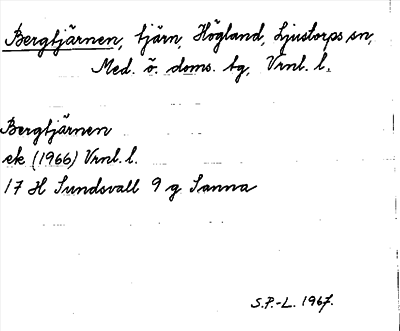 Bergtjärnen, tjärn, Högland, Ljustorps sn,
Med. ö. doms. tg, Vrnl. l.
Bergtjärnen
ek (1966) Vrnl. l.
17 H Sundsvall 9 g Sanna
S.P.-L. 1967.